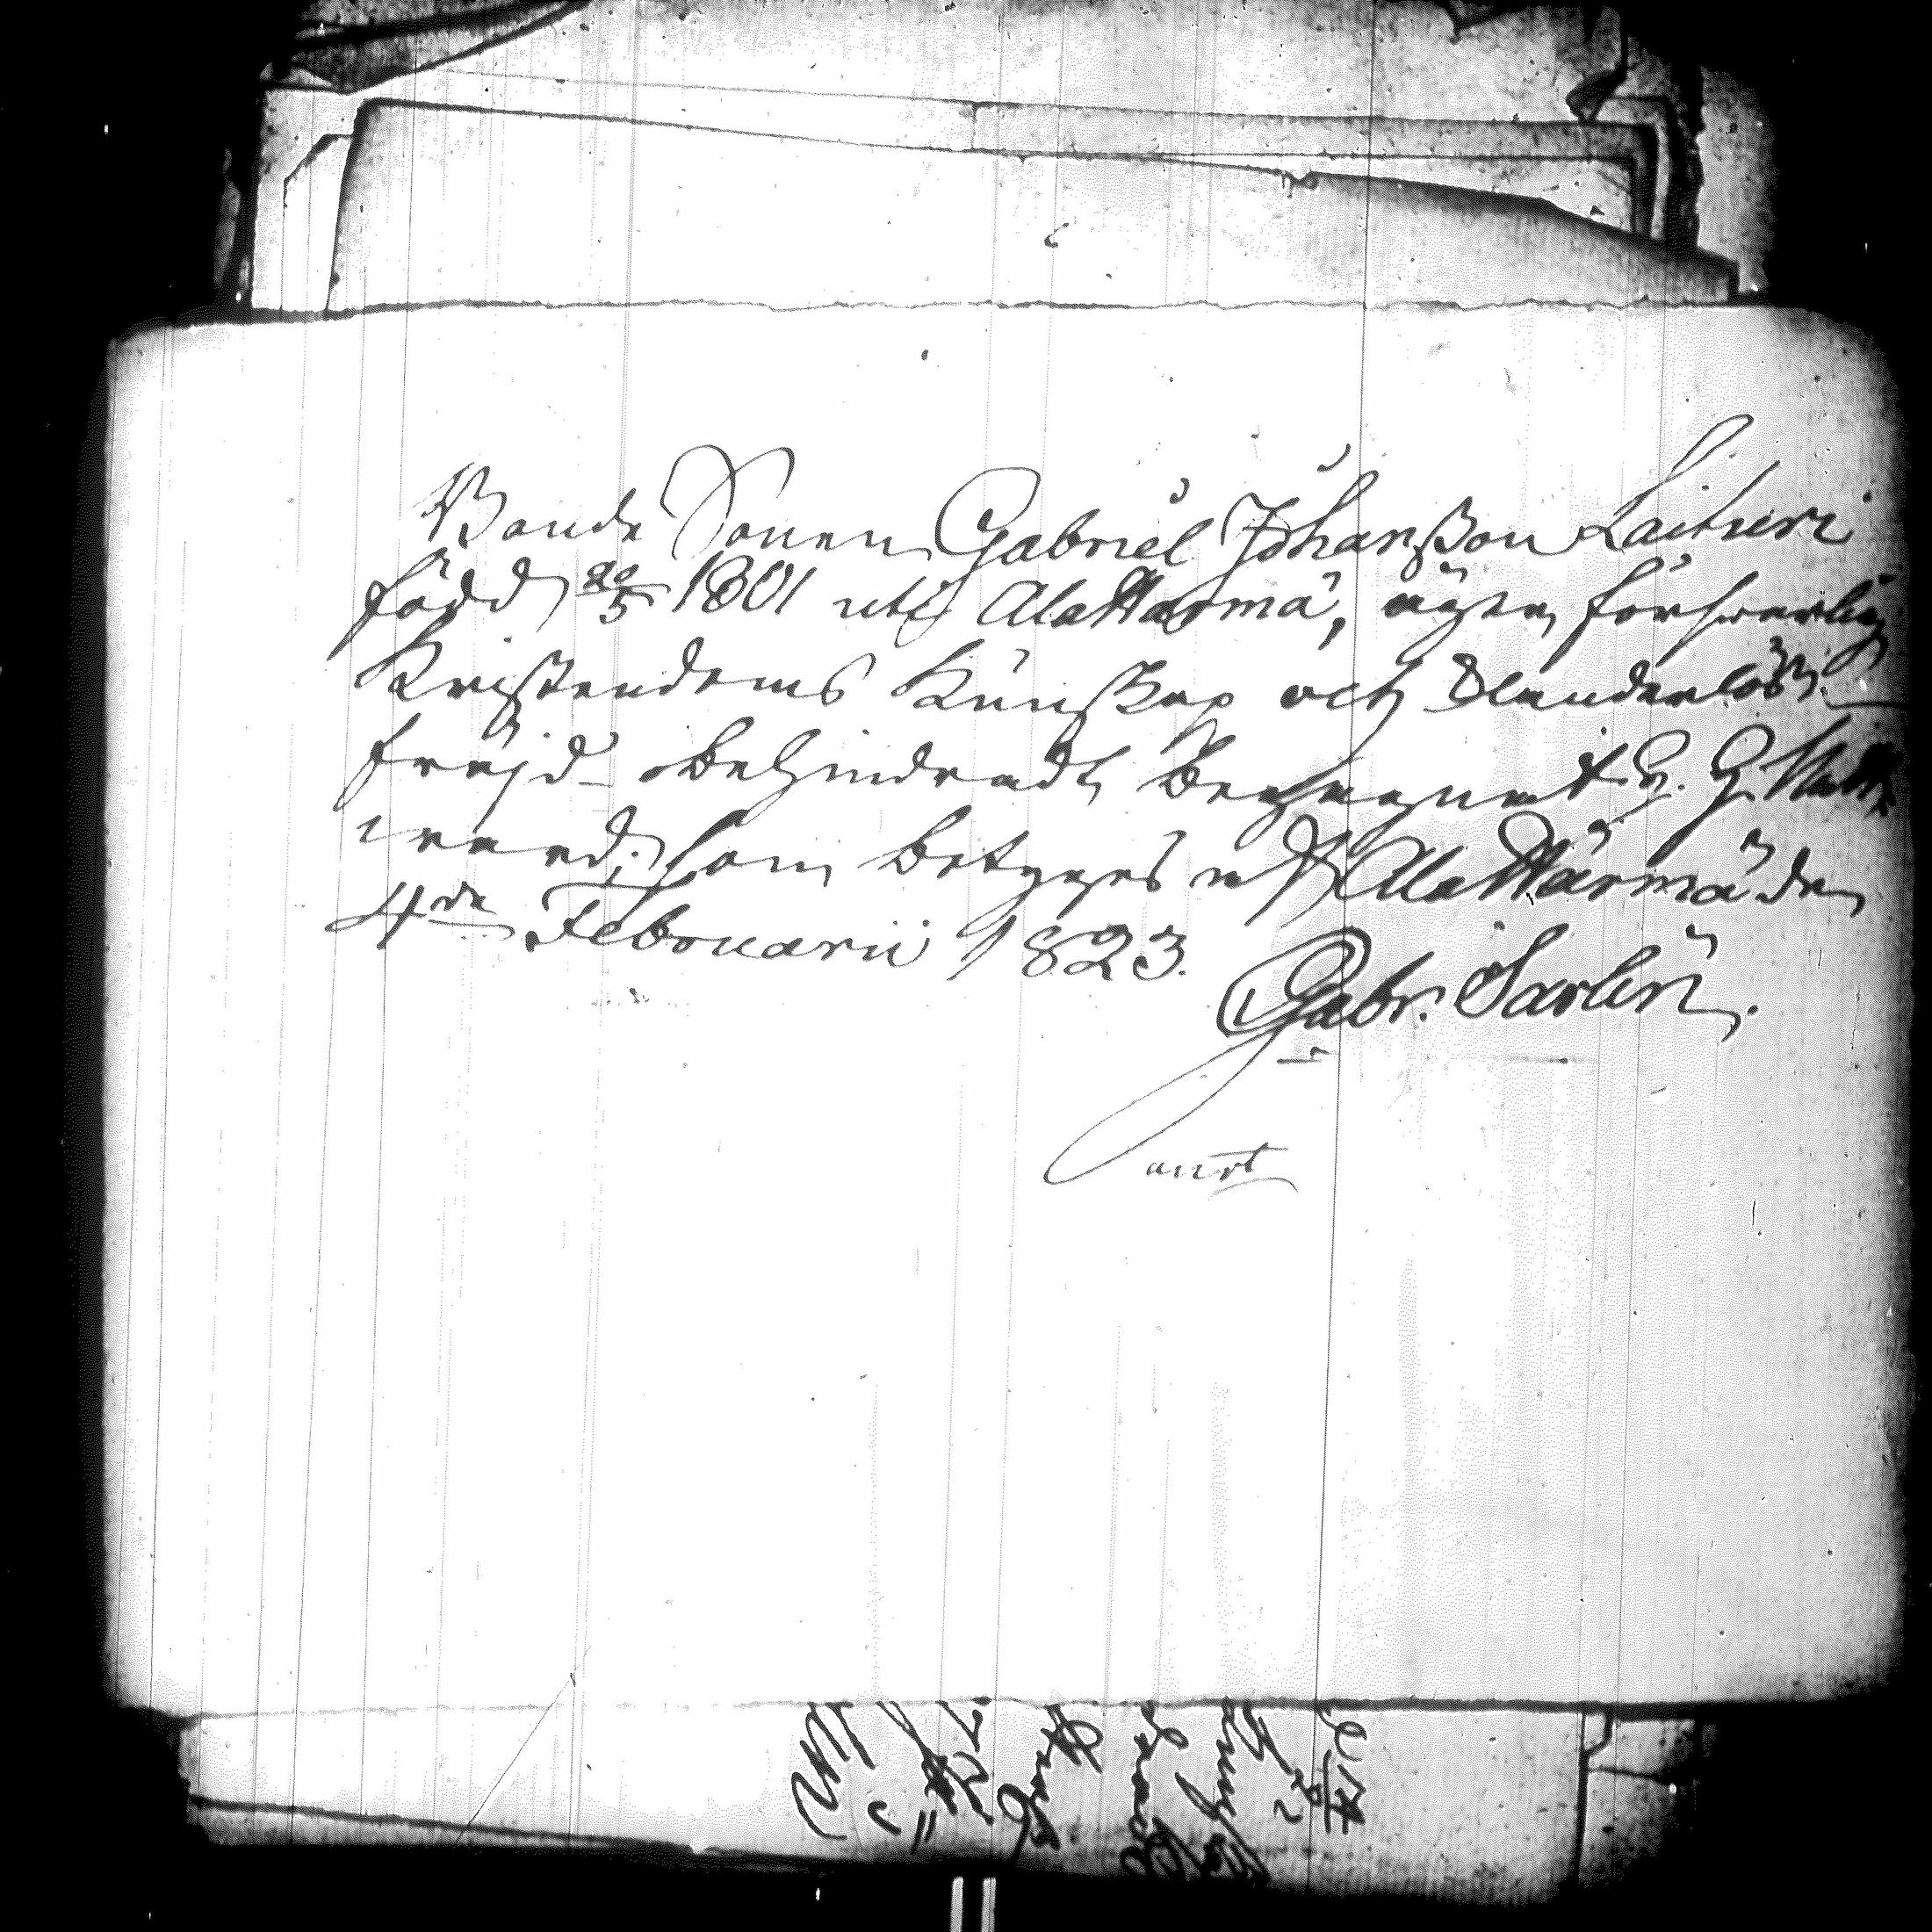 Bonde Sonen Gabriel Johansson Laituri
född 20/5 1801 uti AlaHärmä, äger försvarlig
Kristendoms Kunskap och Klanderlös
frejd obehindradt begagnat H. H. Natt
ward; som betyges uti AlaHärmä den
4de Februarii 1823.
Gabr. Sarlin.